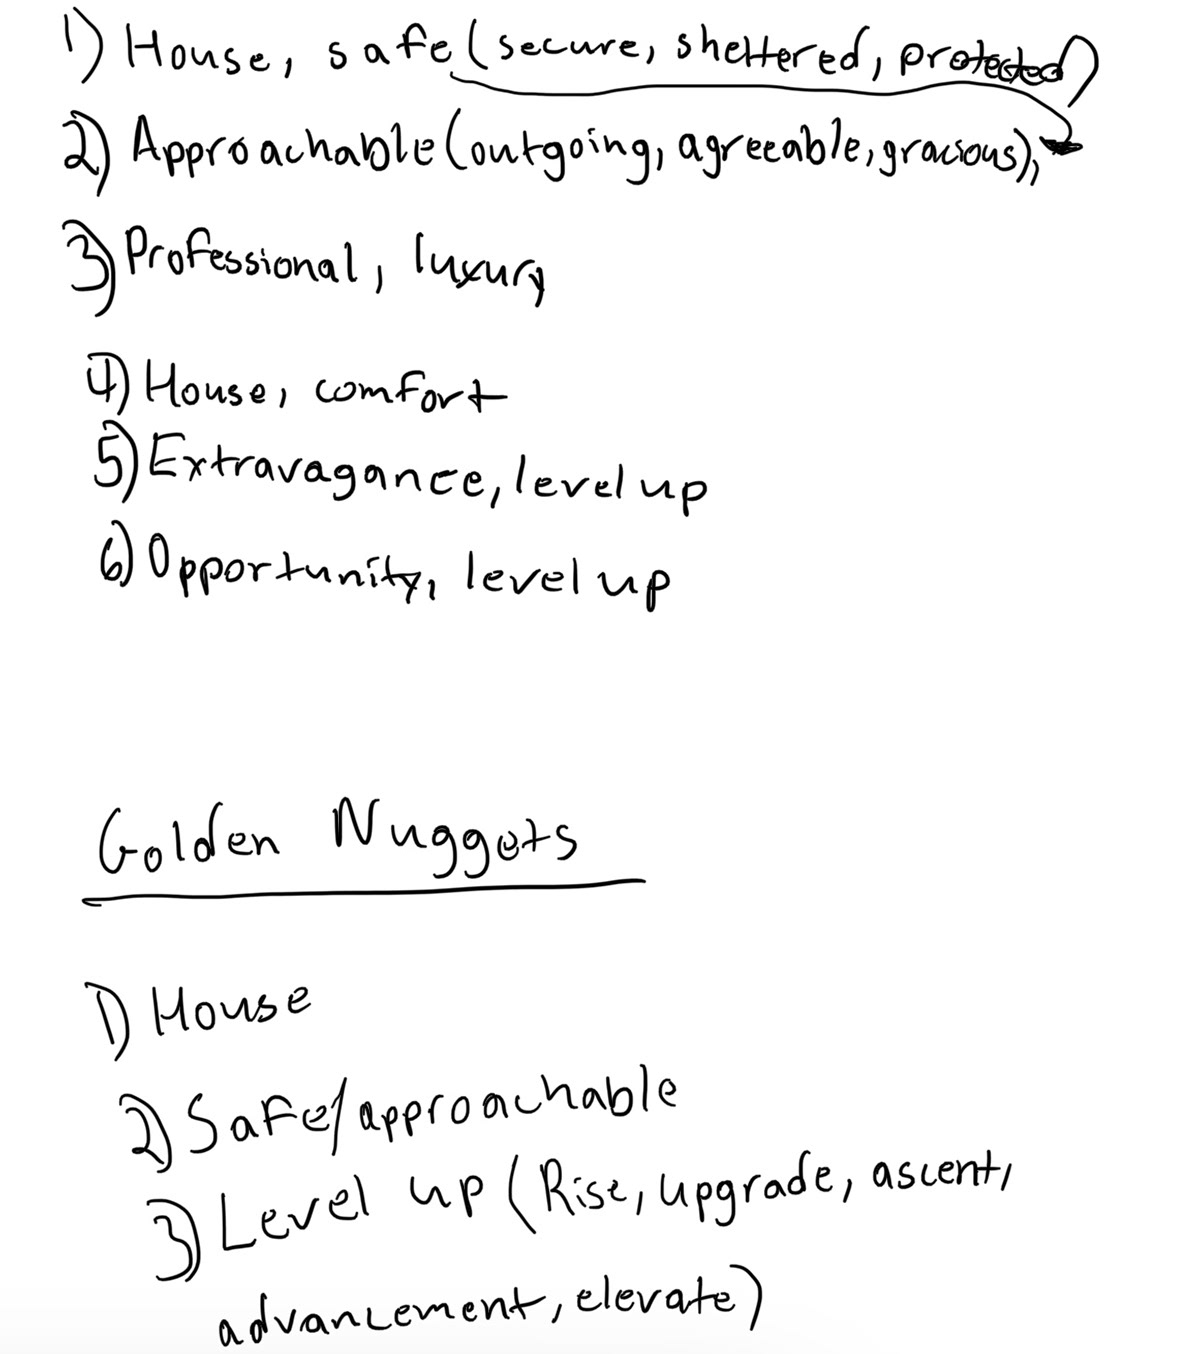 1) House, safe (secure, sheltered, protected)
2) Approachable (outgoing, agreeable, gracious),
3) Professional, luxury
4) House, comfort
5) Extravagance, level up
6) Opportunity, level up
Golden Nuggets
1) House
2) Safe/approachable
3) Level up (Rise, upgrade, ascent,
advancement, elevate)